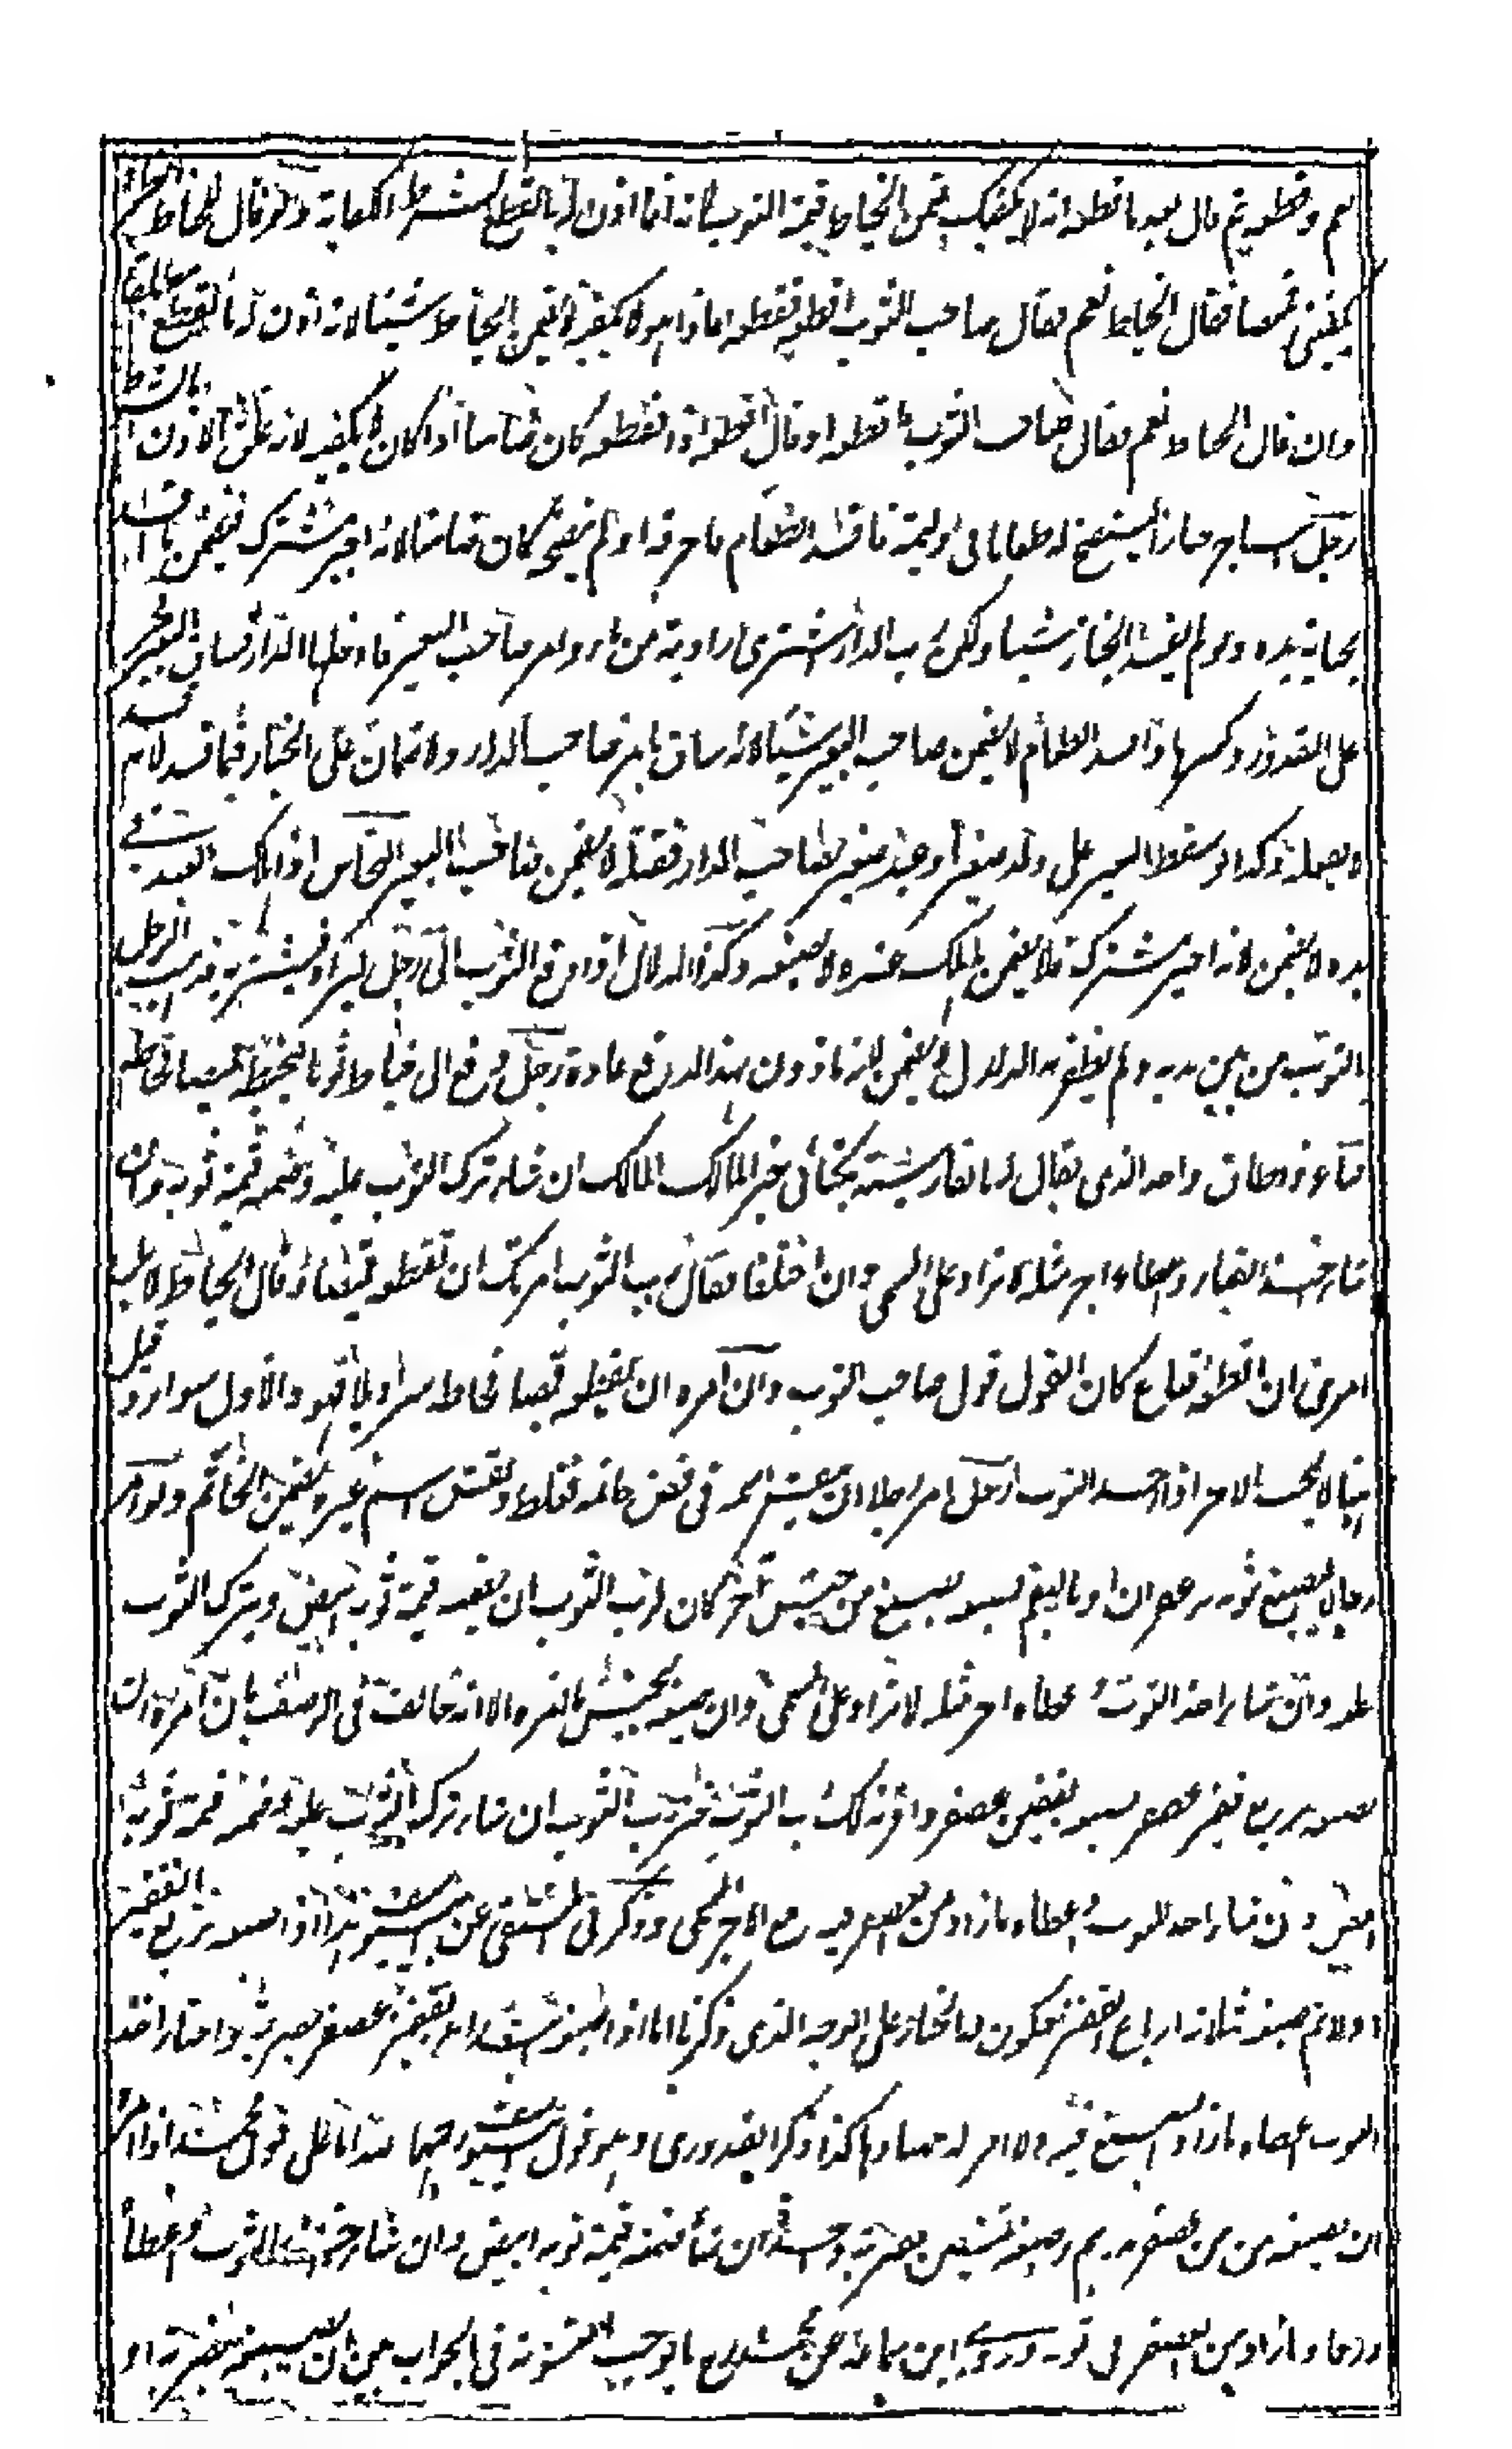 نعم وقطعه ثم قال بعد ما قطعه انه لا يكفيك يضمن الخياط قيمة الثوب لانه انما اذن له بالقطع بشرط الكفاية ولو قال للخياط انظر
يكفيني قميصا فقال الخياط نعم فقال صاحب الثوب اقطعه فقطعه فاذا هو لا يكفيه لا يضمن الخياط شيئا لانه اذن له بالقطع مطلقا
وان قال الخياط نعم فقال صاحب الثوب فاقطعه او قال اقطعه اذا فقطعه كان ضامنا اذا كان لا يكفيه لانه علق الاذن بالشرط
رجل استاجر خبازا ليطبخ له طعاما في وليمة فافسد الطعام فاحرقه او لم ينضجه كان ضامنا لانه اجير مشترك فيضمن ما افسد
بجناية يده ولو لم يفسد الخباز شيئا ولكن رب الدار اشترى راوية من ماء وامر صاحب البعير فادخلها الدار فساق البعير فخر
على القدور وكسرها وافسد الطعام لا يضمن صاحب البعير شيئا لانه ساق بامر صاحب الدار ولا ضمان على الخباز فيما فسد لانه لم يفسد
بعمله وكذا لو سقط البعير على ولد صغير او عبد صغير لصاحب الدار فقتله لا يضمن صاحب البعير النخاس اذا هلك العبد في
يده لا يضمن لانه اجير مشترك فلا يضمن ما هلك عنده لا بصنعه وكذا الدلال اذا دفع الثوب الى رجل ليراه فيشتريه فذهب الرجل
بالثوب من بين يديه ولم يظفر به الدلال لا يضمن لانه ماذون بهذا الدفع عادة رجل دفع الى خياط ثوبا ليخيطه قميصا فخاطه
قباء ذو طاق واحد الذي يقال له بالفارسية يكتائي يخير المالك ان شاء ترك الثوب عليه وضمنه قيمة ثوبه وان
شاء اخذ القباء واعطاه اجر مثله لا يزاد على المسمى وان اختلفا فقال رب الثوب امرتك ان تقطعه قميصا وقال الخياط لا بل
امرتني ان اقطعه قباء كان القول قول صاحب الثوب وان امره ان يخيطه قميصا فخاطه سراويلا فهو والاول سواء وقيل
ههنا لا يجب الاجر اذا اخذ الثوب رجل امر رجلا ان ينقش اسمه في فص خاتمه فغلط ونقش اسم غيره يضمن الخاتم ولو امر
رجلا ليصبغ ثوبه بزعفران او بالبقم فصبغه بصبغ من جنس آخر كان لرب الثوب ان يضمنه قيمة ثوبه ابيض ويترك الثوب
عليه وان شاء اخذ الثوب واعطاه اجر مثله لا يزاد على المسمى وان صبغه بجنس ما امره الا انه خالف في الوصف بان امره ان
يصبغه بربع قفيز عصفر فصبغه بقفيز عصفر واقر بذلك رب الثوب خير رب الثوب ان شاء ترك الثوب عليه وضمنه قيمة ثوبه
ابيض وان شاء اخذ الثوب واعطاه ما زاد من العصفر فيه مع الاجر المسمى وذكر في المنتقى عن هذا اذا صبغه بربع القفيز
اولا ثم صبغه بثلاثة ارباع القفيز فيكون له الخيار على الوجه الذي ذكرنا اما اذا صبغه ابتداء بقفيز عصفر بضربة واختار اخذ
الثوب اعطاه ما زاد الصبغ فيه ولا اجر له هكذا ذكر القدوري وهو قول اما على قول محمد اذا امره
ان يصبغه بمن من عصفر بدرهم وصبغه بمنين بضربة واحدة ان شاء ضمنه قيمة ثوبه ابيض وان شاء اخذ الثوب واعطاه
درهما وما زاد من العصفر في ثوبه وروى ابن سماعة عن محمد ما يوجب التسوية في الجواب بين ان يصبغه بضربة او